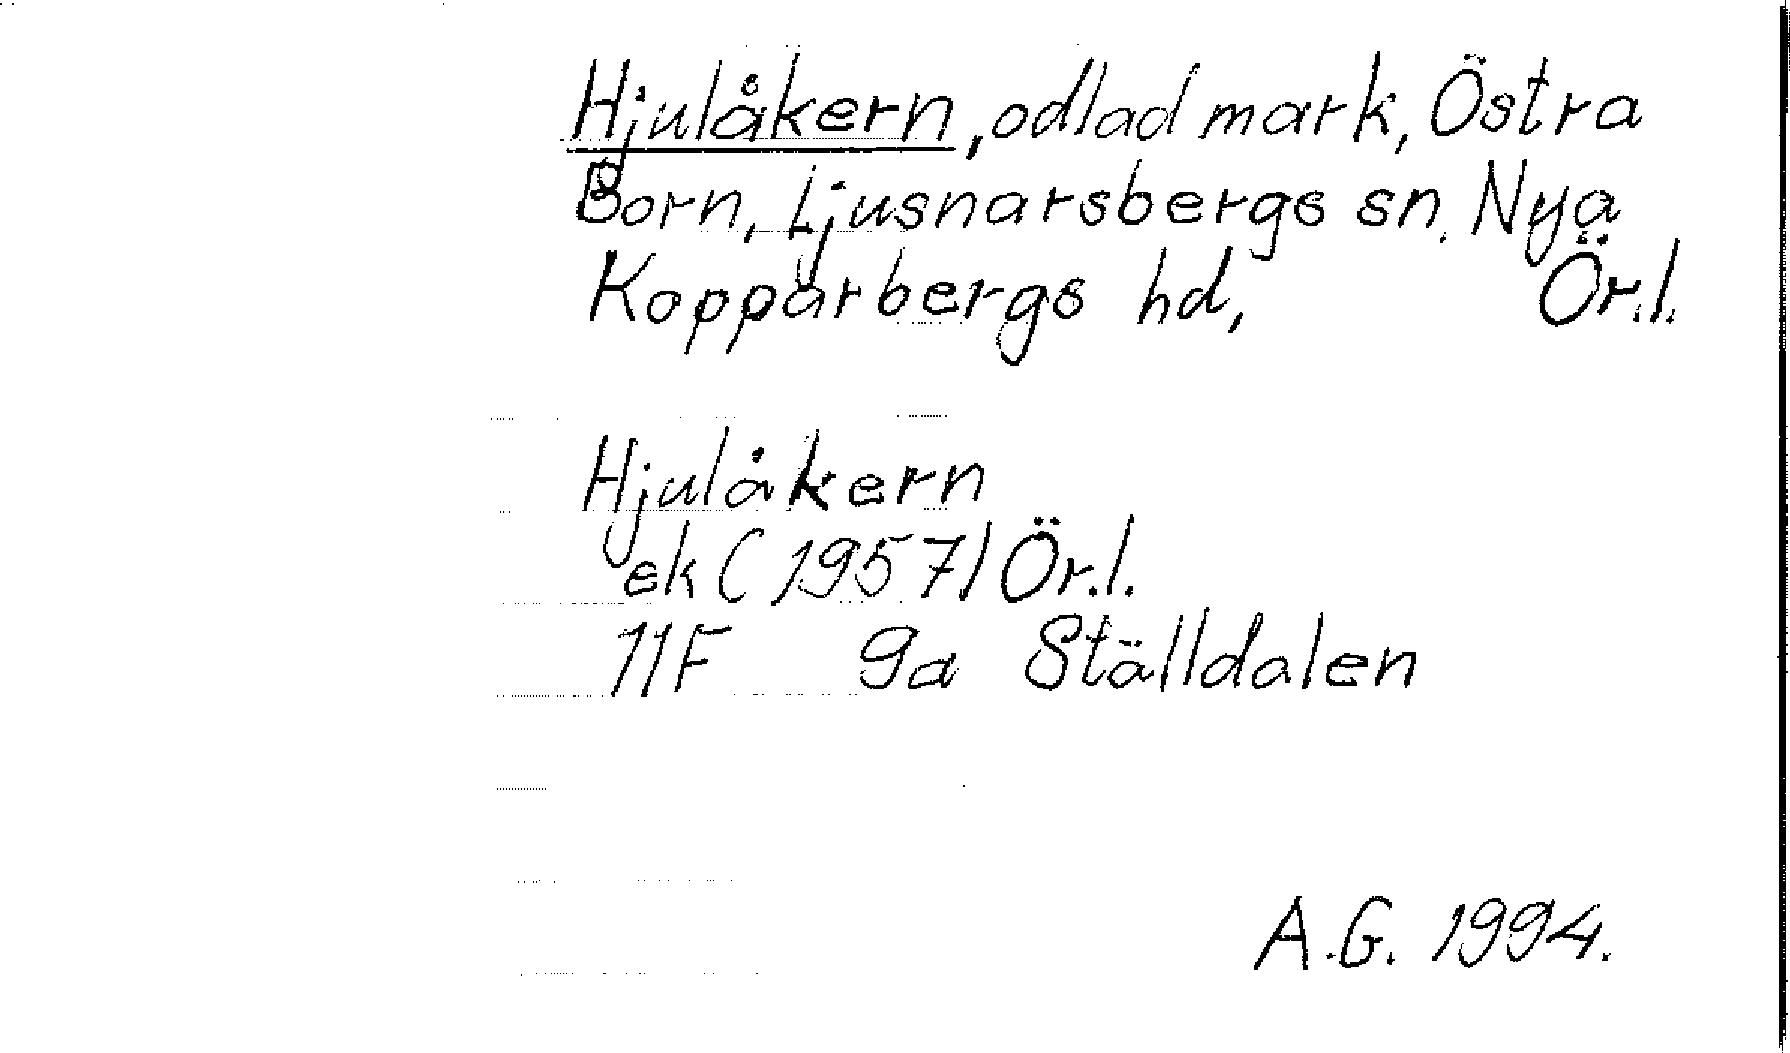 Hjulåkern, odlad mark, Östra
Born, Ljusnarsbergs sn. Nya
Kopparbergs hd, Ör.l.
Hjulåkern
ek (1957) Ör.l.
11F 9a Ställdalen
A.G. 1994.